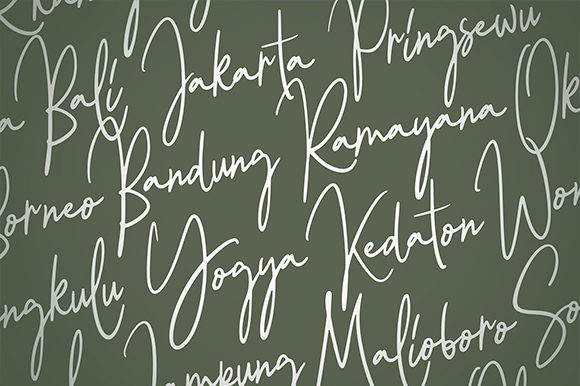 Bali Jakarta Pringsewu
Borneo Bandung Ramayana Ok
ngkulu Yogya Kedaton Won
Lampung Malioboro So